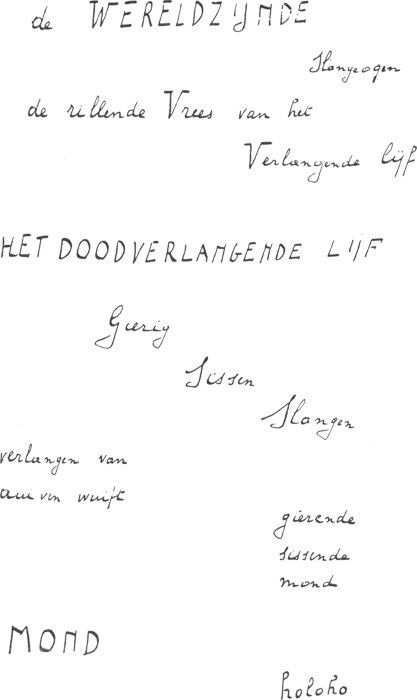 de WERELDZIJNDE
Slangeogen
de rillende Vrees van het
Verlangende lijf
HET DOODVERLANGENDE LIJF
Gierig
Sissen
Slangen
verlangen van
wuift
gierende
sissende
mond
MOND
holoho